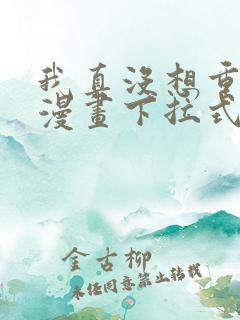 我真沒想重
漫畫下拉式
金古柳
未经同意禁止转载